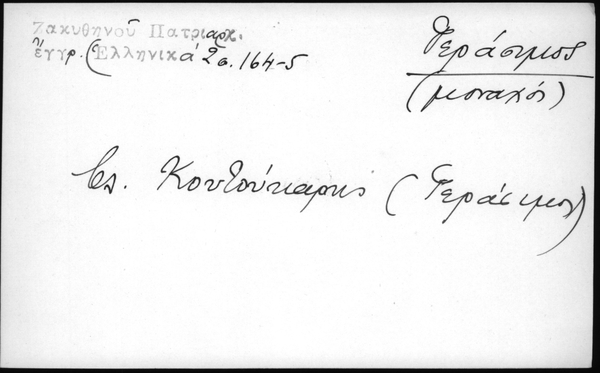 Ζακυθηνοῦ Πατριαρχ.
ἔγγρ. (Ἑλληνικά 2 σ. 164-5
Γεράσιμος
(μοναχός)
Βλ. Κουτούκαρης (Γεράσιμος)